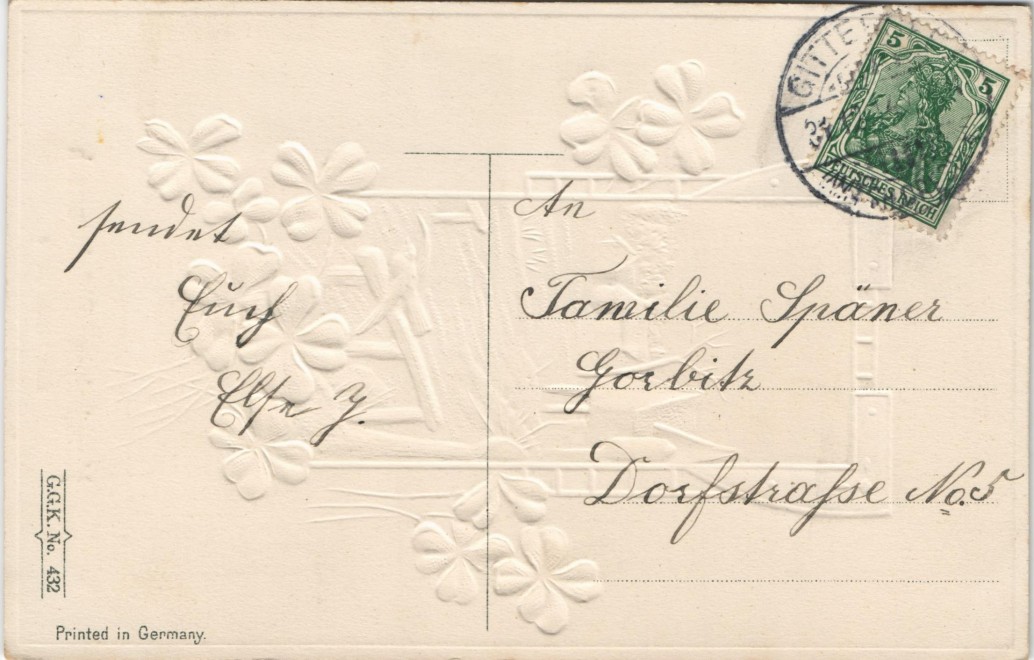 sendet
Euch
Else J.
An
Familie Späner
Gorbitz
Dorfstraße No. 5
5 5
DEUTSCHES REICH
GITTE
G.G.K. No. 432
Printed in Germany.